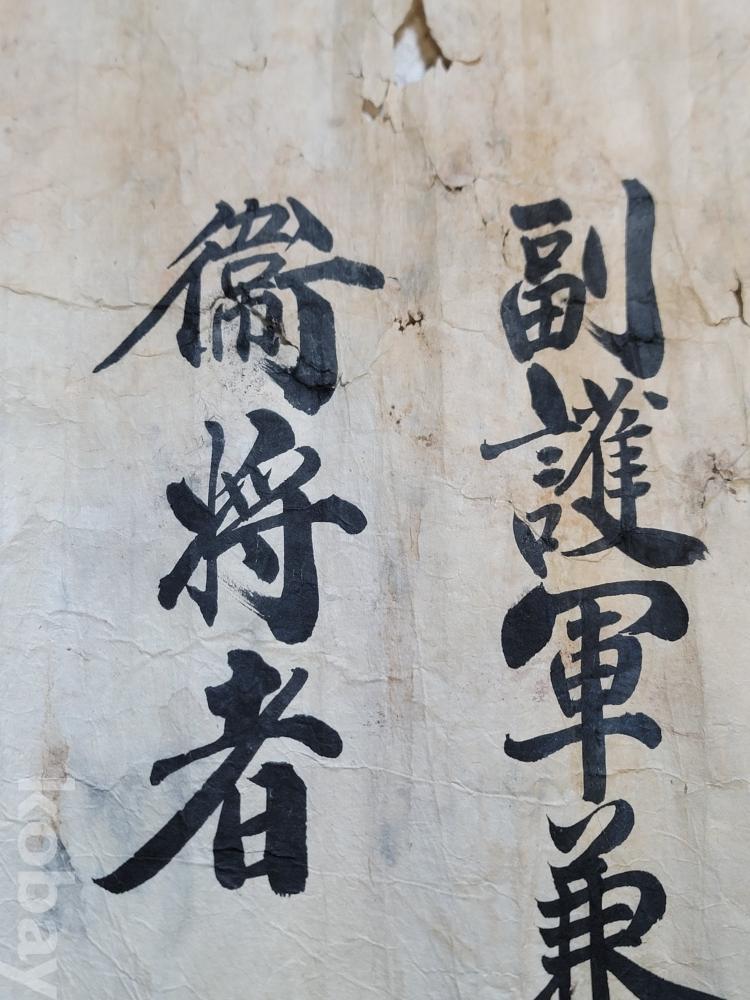 副護軍兼
衛將者
kobay